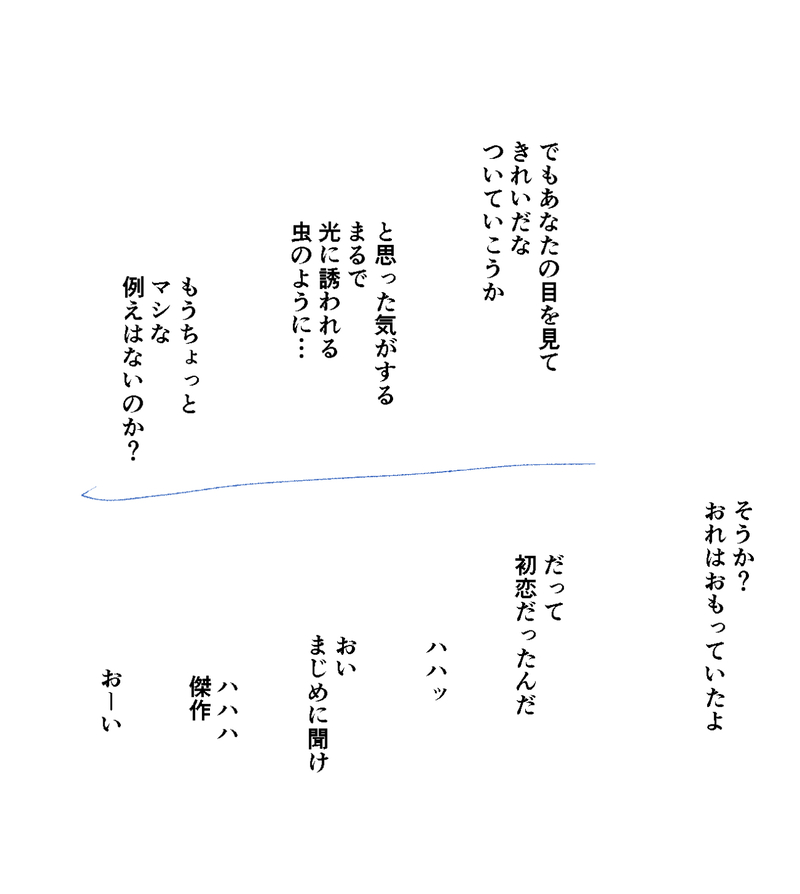 でもあなたの目を見て
きれいだな
ついていこうか
と思った気がする
まるで
光に誘われる
虫のように…
もうちょっと
マシな
例えはないのか？
そうか？
おれはおもっていたよ
だって
初恋だったんだ
ハハッ
おい
まじめに聞け
ハハハ
傑作
おーい